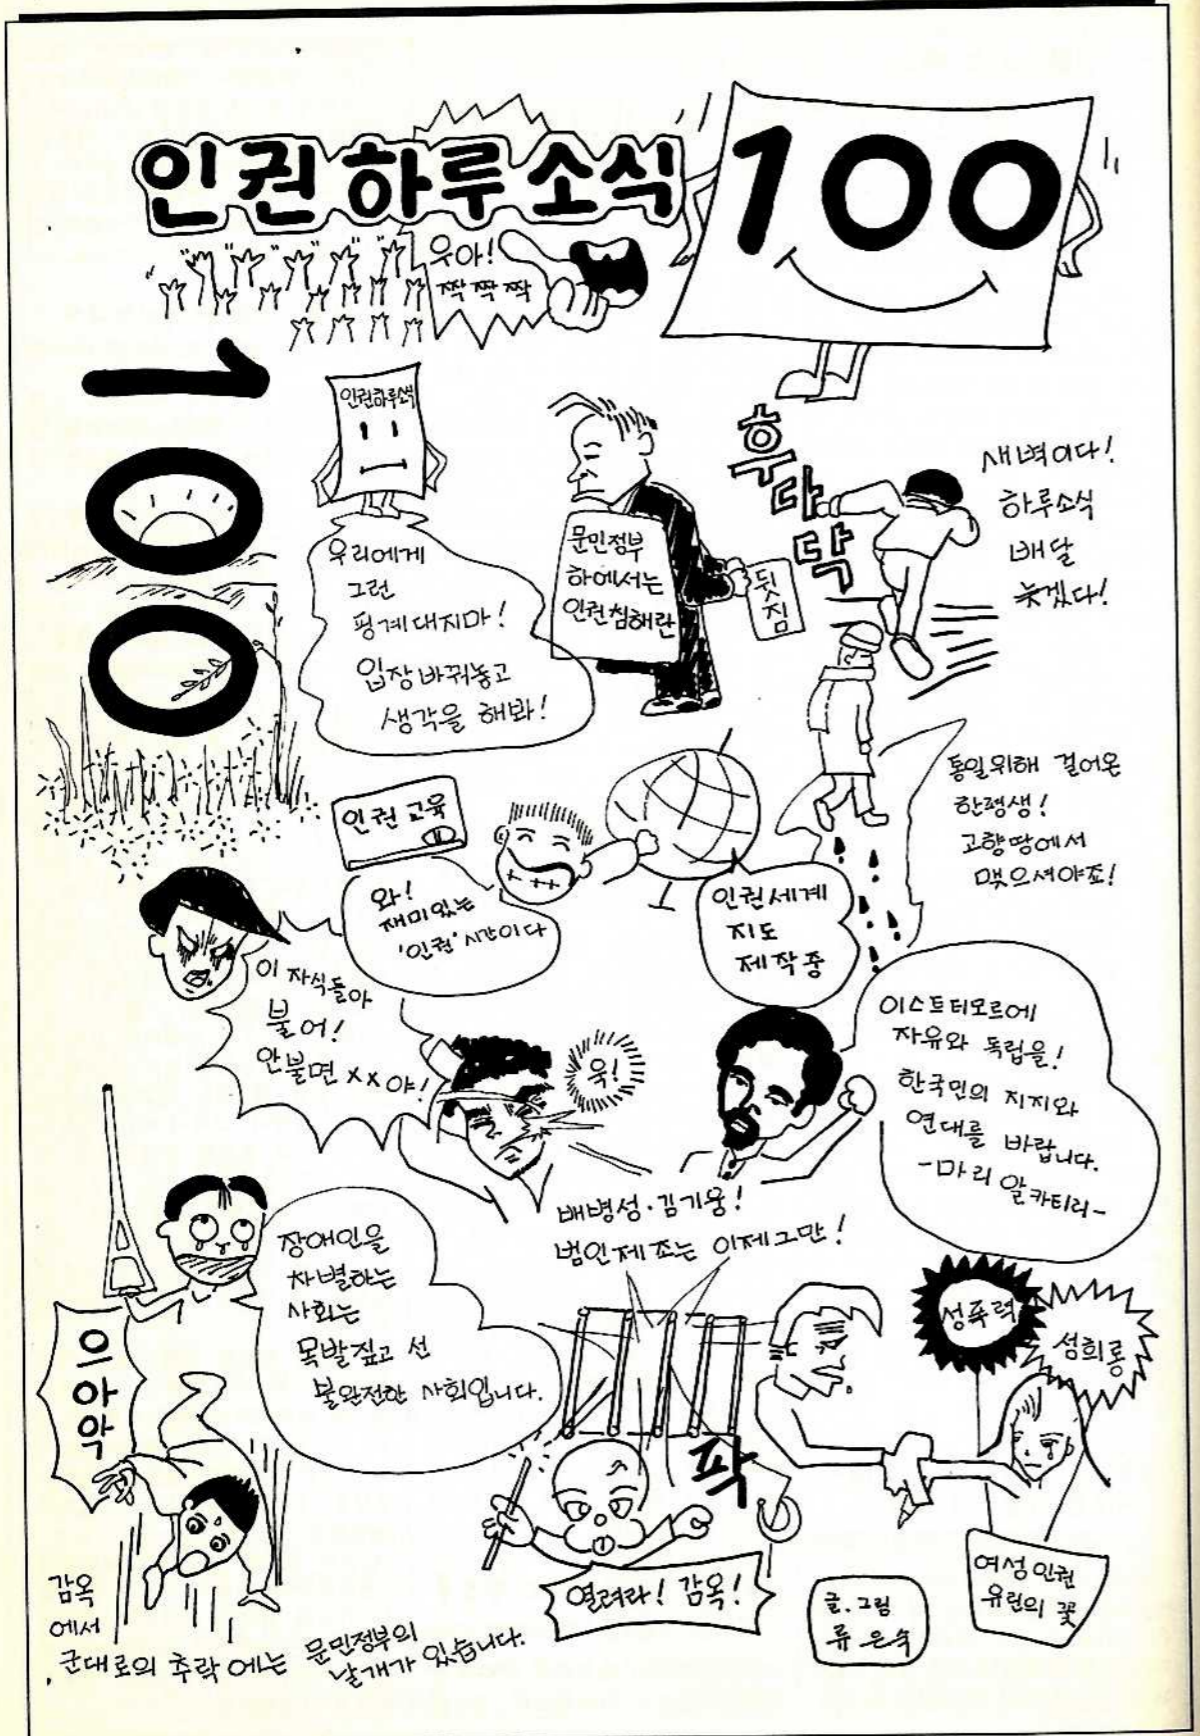 인권하루소식
100
우아!
짝짝짝
100
인권하루소식
우리에게
그런
핑계대지마!
입장바꿔놓고
생각을 해봐!
문민정부
하에서는
인권침해란
뒷
짐
후
다
닥
새벽이다!
하루소식
배달
늦겠다!
통일위해 걸어온
한평생!
고향땅에서
맺으셔야죠!
인권 교육
와!
재미있는
'인권'시간이다
인권세계
지도
제작중
이 자식들아
불어!
안불면 xx야!
욱!
이스트티모르에
자유와 독립을!
한국민의 지지와
연대를 바랍니다.
-마리 알카티리-
배병성·김기웅!
범인제조는 이제그만!
장애인을
차별하는
사회는
목발짚고 선
불완전한 사회입니다.
으
아
악
감옥
에서
군대로의 추락에는 문민정부의
날개가 있습니다.
팍
열려라! 감옥!
성폭력
성희롱
여성인권
유린의 꽃
글.그림
류은숙